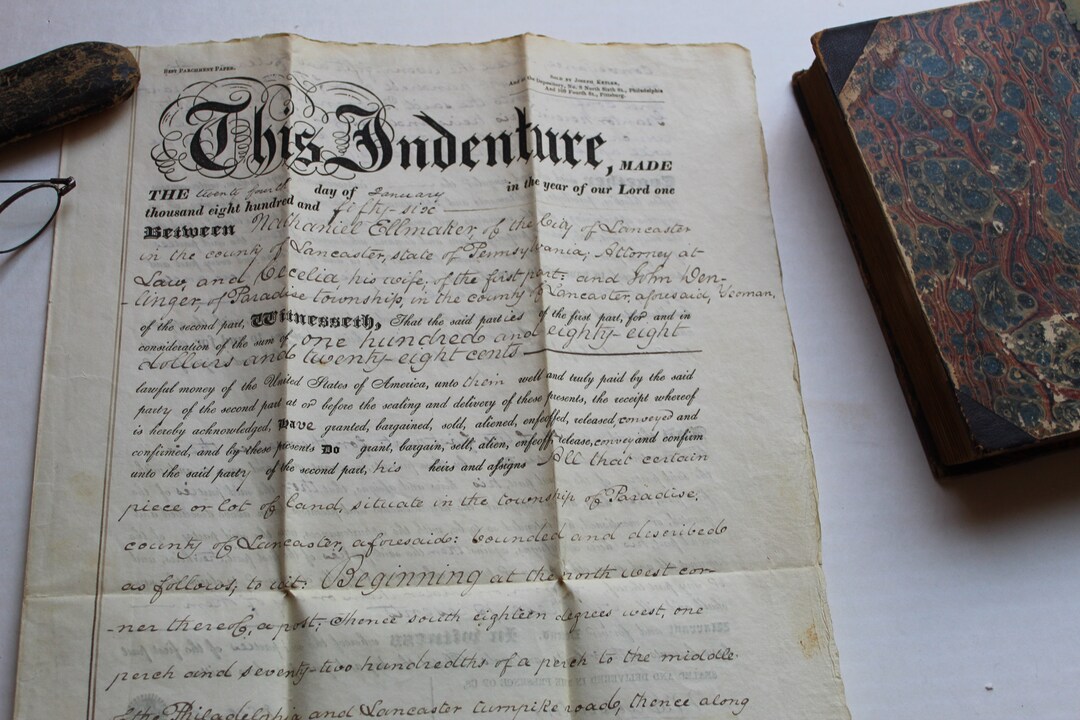 Best Parchment Paper.
Sold by Joseph Ketler,
And at the Conveyancery, No. 6 North Sixth St., Philadelphia
And 123 Fourth St., Pittsburg.
This Indenture, MADE
THE twenty fourth day of January in the year of our Lord one
thousand eight hundred and fifty-six
Between Nathaniel Ellmaker, of the City of Lancaster
in the county of Lancaster, state of Pennsylvania, Attorney at
Law, and Cecelia his wife, of the first part: and John Den-
-linger, of Paradise township, in the county of Lancaster, aforesaid, Yeoman,
of the second part, Witnesseth, That the said parties of the first part, for and in
consideration of the sum of one hundred and eighty-eight
dollars and twenty-eight cents
lawful money of the United States of America, unto them well and truly paid by the said
party of the second part at or before the sealing and delivery of these presents, the receipt whereof
is hereby acknowledged, Have granted, bargained, sold, aliened, enfeoffed, released, conveyed and
confirmed, and by these presents Do grant, bargain, sell, alien, enfeoff, release, convey and confirm
unto the said party of the second part, his heirs and assigns All that certain
piece or lot of land, situate in the township of Paradise,
county of Lancaster, aforesaid: bounded and described
as follows; to wit: Beginning at the north west cor-
-ner thereof, a post; thence south eighteen degrees west, one
perch and seventy-two hundredths of a perch to the middle
of the Philadelphia and Lancaster turnpike road, thence along